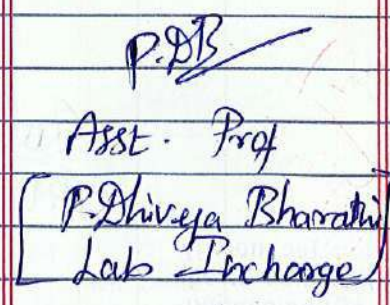 P.DB
Asst. Prof
[P.Dhivya Bharathi
Lab Incharge]